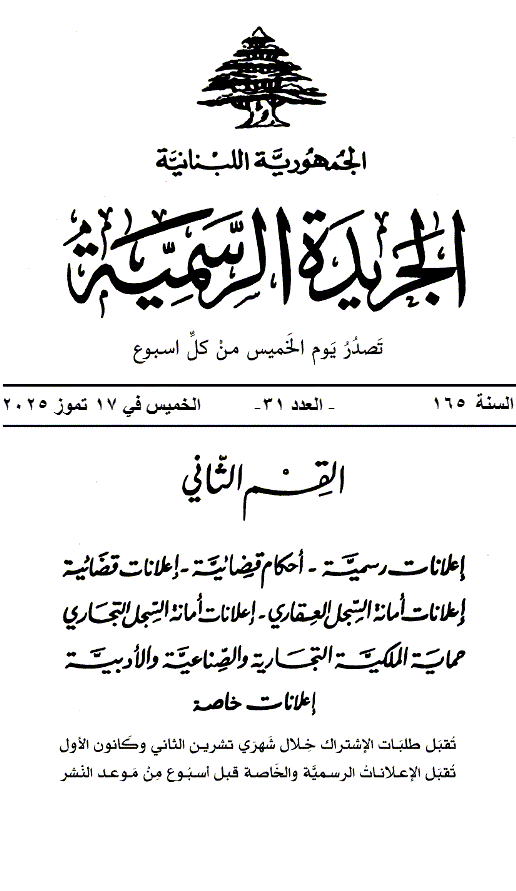 الجُمهُوريَّة اللبْنانيَّة
الجَريدَة الرّسْمِيَّة
تَصدُرُ يَوم الخَميس منْ كلِّ اسبوع
السنة ١٦٥ - العدد ٣١- الخميس في ١٧ تموز ٢٠٢٥
القِسْم الثّاني
إعلانات رسميَّة - أحكام قضائيَّة - إعلانات قضائية
إعلانات أمانة السّجل العقاري - إعلانات أمانة السّجل التجاري
حماية الملكيَّة التجارية والصّناعيَّة والأدبيَّة
إعلانات خاصة
تُقبَل طلبَات الإشتراك خِلال شَهرَي تشرين الثاني وكَانون الأول
تُقبَل الإعلاناتُ الرسميَّة والخَاصة قبل أسبُوع مِنْ مَوعد النّشر